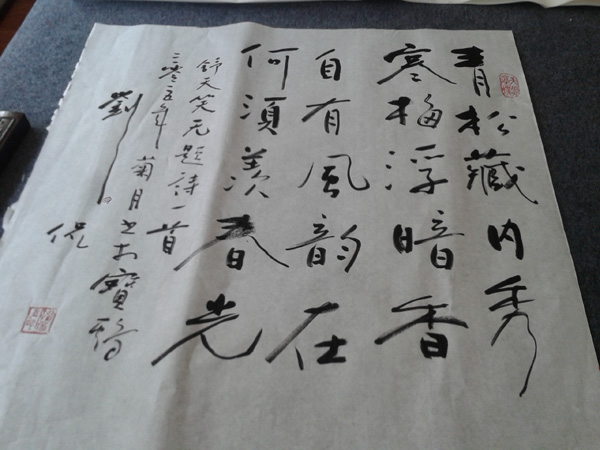 青松藏内秀
寒梅浮暗香
自有风韵在
何须羡春光
舒天笑无题诗一首
二零一五年菊月书于宝鸡
劉侃